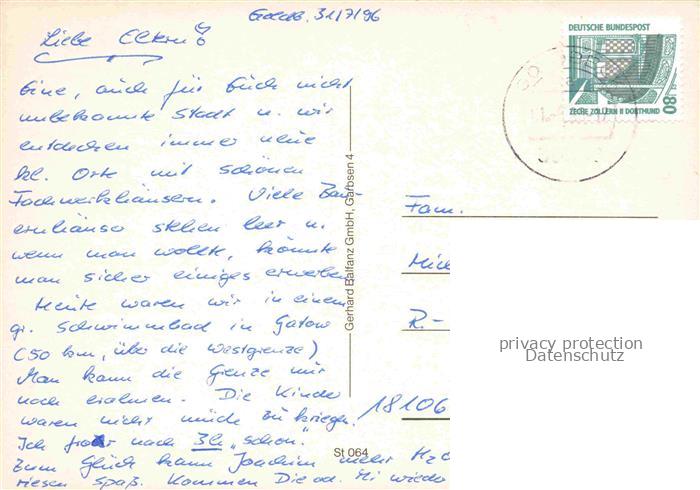 31/7/96
Liebe Eltern!
Eine, auch für Euch nicht
unbekannte Stadt u. wir
entdecken immer neue
kl. Orte mit schönen
Fachwerkhäusern. Viele Bau-
ernhäuser stehen leer u.
wenn man wollte, könnte
man sicher einiges erwerben.
Heute waren wir in einem
gr. Schwimmbad in
(50 km, über die Westgrenze)
Man kann die Grenze nur
noch erahnen. Die Kinder
waren nicht müde zu kriegen.
Ich nach 3h "schon".
Zum Glück kann Joachim mehr H2O
riesen Spaß. Kommen Die od. Mi wieder
Gerhard Balfanz GmbH, Garbsen 4
St 064
DEUTSCHE BUNDESPOST
80
ZECHE ZOLLERN II DORTMUND
Fam.
Mich
R.-
18106
privacy protection
Datenschutz